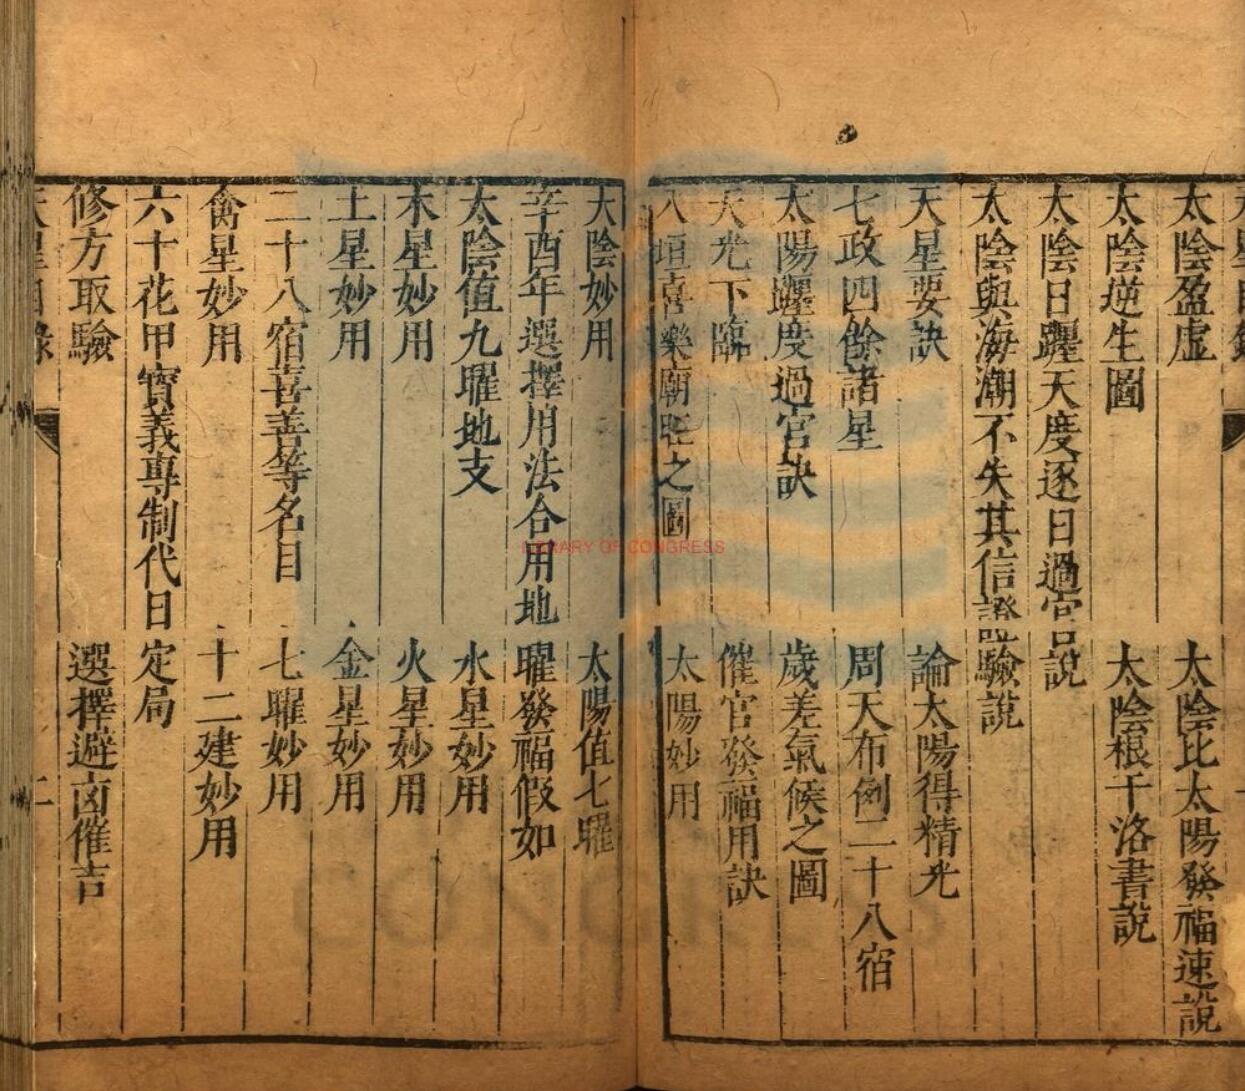 太陰盈虛　太陰比太陽發福速說
太陰逆生圖　太陰根于洛書說
太陰日躔天度逐日過宮吉說
太陰與海潮不失其信證驗說
天星要訣　論太陽得精光
七政四餘諸星　周天布例二十八宿
太陽躔度過宮訣　歲差氣候之圖
天光下臨　催官發福用訣
八垣喜樂廟旺之圖　太陽妙用
太陰妙用　太陽值七曜
辛酉年選擇用法合用地　曜發福假如
太陰值九曜地支　水星妙用
木星妙用　火星妙用
土星妙用　金星妙用
二十八宿喜善等名目　七曜妙用
禽星妙用　十二建妙用
六十花甲寶義專制代日　定局
修方取驗　選擇避凶催吉
二
LIBRARY OF CONGRESS